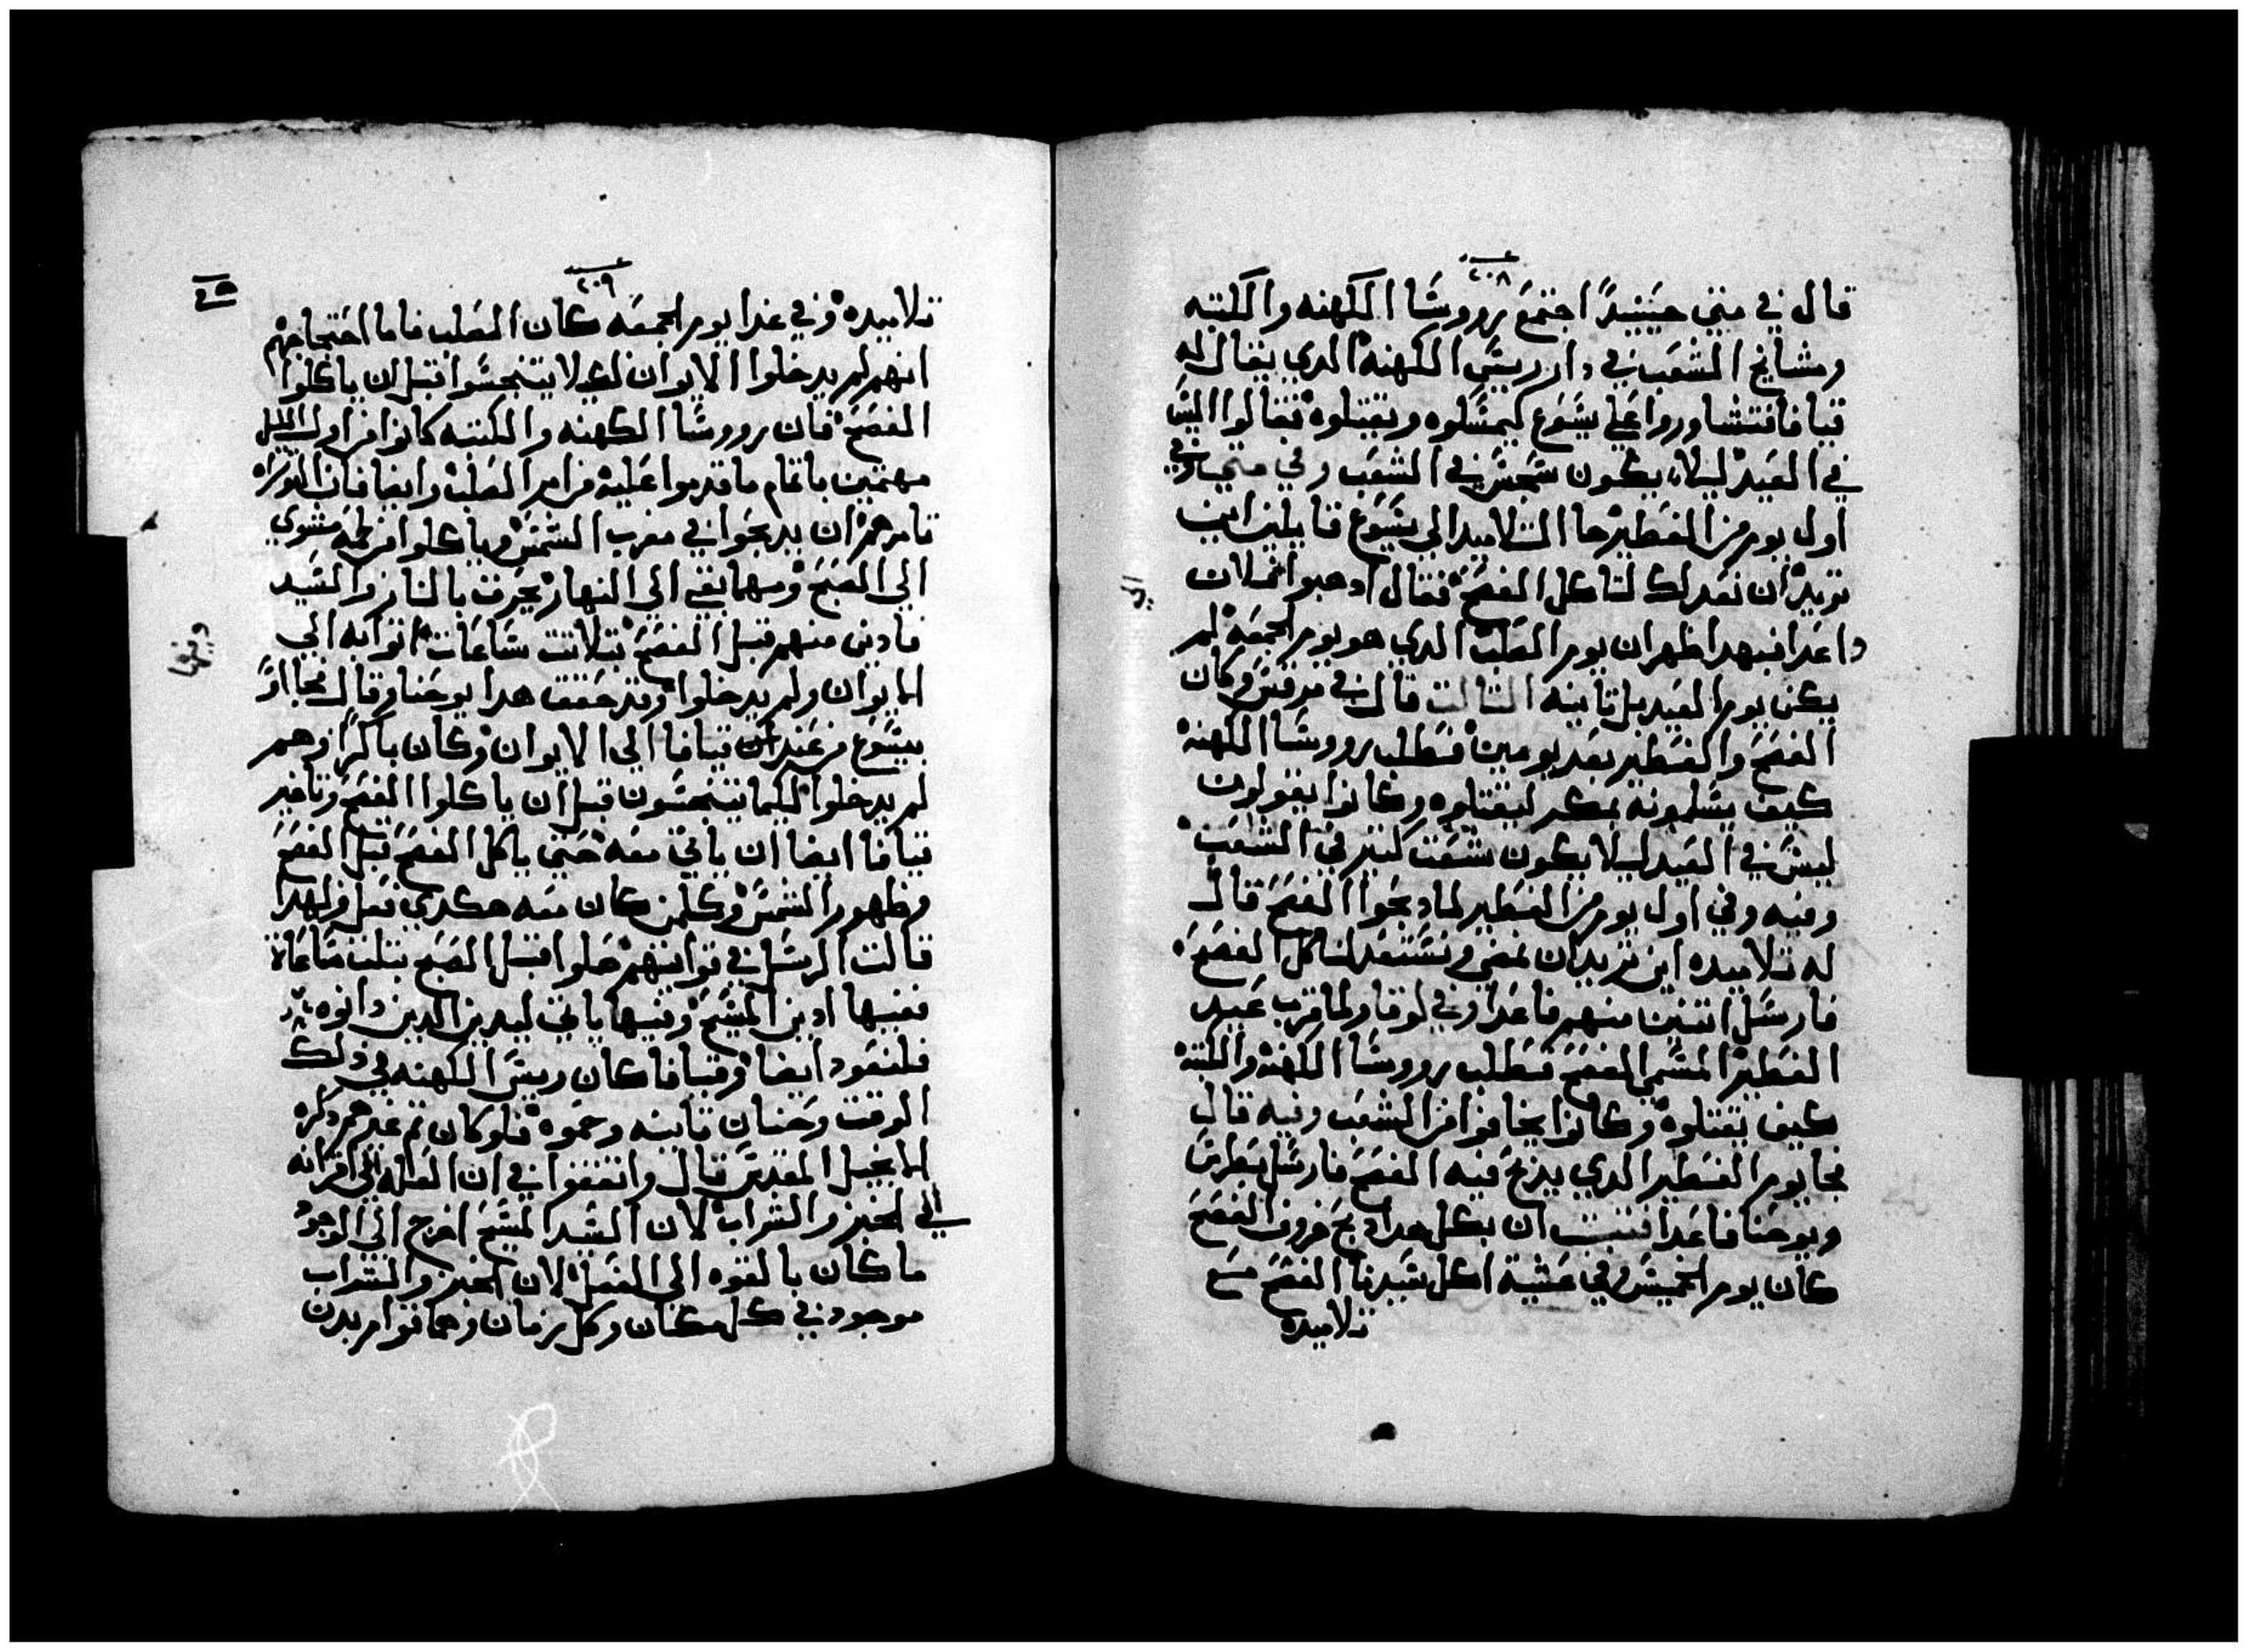 ٢٠٨
قال في متي حينيدًا اجتمع رووسا الكهنه والكتبه
ومشايخ الشعب في دار رييس الكهنه الدي يقال له
قيافا فتشاوروا علي يسوع ليمسكوه ويقتلوه فقالوا ليس
في العيد ليلا يكون سجس في الشعب وفي متي وفي
اول يوم من الفطير جا التلاميد الي يسوع قايلين اين
تريد ان نعد لك لتاكل الفصح فقال ادهبوا الي فلان
واعدا فبهدا ظهر ان يوم الصلب الدي هو يوم الجمعه لم
يكن يوم العيد بل تانيه التالت قال في مرقس وكان
الفصح والفطير بعد يومين فطلب رووسا الكهنه
كيف يسلمونه بمكر ليقتلوه وكانوا يقولون
ليس في العيد ليلا يكون شغب كتير في الشعب
وفيه وفي اول يوم من الفطير لما دبحوا الفصح قال
له تلاميده اين تريد ان نمضي ونستعد لتاكل الفصح
فارسل اتنين منهم فاعدا وفي لوقا ولما قرب عيد
الفطير المسمي الفصح فطلب رووسا الكهنه والكتبه
كيف يقتلوه وكانوا يخافوا من الشعب وفيه قال
فجا يوم الفطير الدي يدبح فيه الفصح فارسل بطرس
ويوحنا فاعدا فتبت ان بكل هدا دبح خروف الفصح
كان يوم الخميس وفي عشية اكل سيدنا الفصح مع
تلاميده
٢٠٩
تلاميده وفي غدا يوم الجمعه كان الصلب فاما احتجاجهم
انهم لم يدخلوا الايوان لكيلا يتنجسوا قبل ان ياكلوا
الفصح فان رووسا الكهنه والكتبه كانوا من اول الليل
مهتمين باتمام ما قدموا عليه من امر الصلب وايضا فان التوراه
تامرهم ان يدبحوا في مغرب الشمس وياكلوا من لحمه مشوي
الي الصبح ومهما بقي الي النهار يحرق بالنار والسيد
فادين منهم قبل الفصح بتلاتت ساعات اتوا به الي
الايوان ولم يدخلوا وقد حقق هدا يوحنا وقال فجااوا
بيسوع من عند قيافا الي الايوان وكان باكرًا وهم
لم يدخلوا ليكما يتنجسون قبل ان ياكلوا الفصح وتاخير
قيافا ايضا ان ياتي معه حتي ياكل الفصح قبل الفصح
وظهور الشمس وكلمن كان معه هكدي فعل ولهدا
قالت الرسل في قوانينهم صلوا قبل الصبح بتلت ساعاة
ففيها ادين المسيح وفيها ياتي ليدين الدين دانوه
فلنعود ايضا وقيافا كان رييس الكهنه في دلك
الوقت وحنان تانيه وحموه فلو كان تم غيرهم دكره
الانجيل المقدس قال واتفقوا في ان العله الي اقرانه
الي الخبز والشراب لان السيد المسيح اخرج الي الوجود
ما كان بالقوه الي الفعل لان الخبز والشراب
موجود في كل مكان وكل زمان وهما قوام بدن